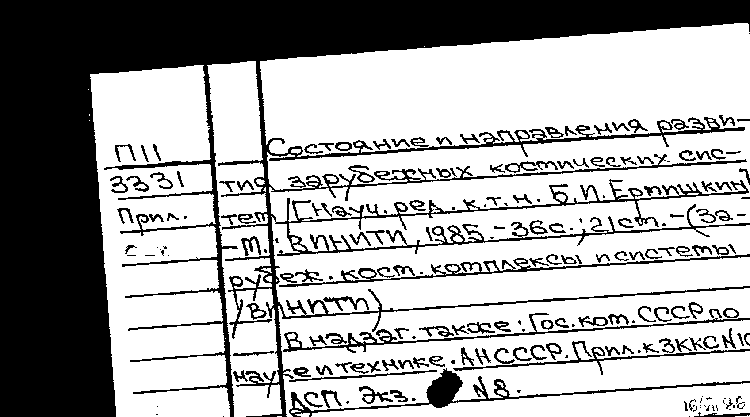 П11
3331
Прил.
Состояние и направления разви-
тия зарубежных космических сис-
тем / [Науч. ред. к.т.н. Б.И. Ермишкин]
- М.: ВИНИТИ, 1985. - 36с.; 21см. - (За-
рубеж. косм. комплексы и системы
/ ВИНИТИ).
В надзаг. также: Гос. ком. СССР по
науке и технике. АН СССР. Прил. к ЗККС N10
ДСП. Экз. N8.